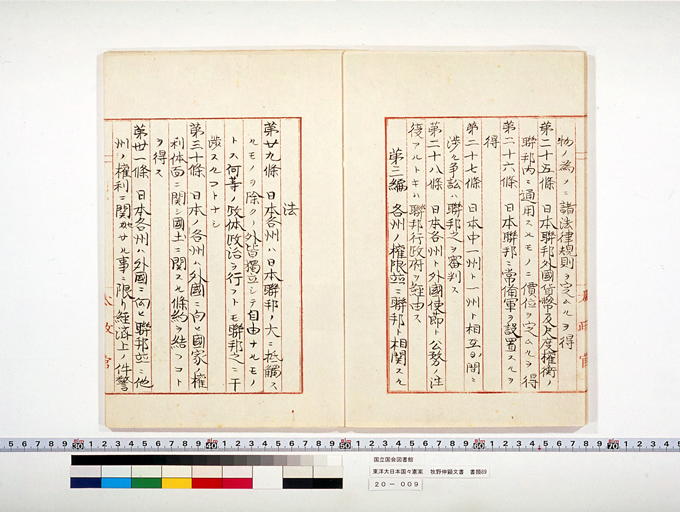 物ノ為ノニ諸法律規則ヲ定ムルヲ得
第二十五條 日本聯邦外國貨幣及尺度權衡ノ
聯邦内ニ通用スルモノニ價位ヲ定ムルヲ得
第二十六條 日本聯邦ニ常備軍ヲ設置スルヲ
得
第二十七條 日本中一州ト一州ト相互ノ間ニ
渉ル爭訟ハ聯邦之ヲ審判ス
第二十八條 日本各州ト外國使節ト公務ノ往
復アルトキハ聯邦行政府ヲ経由ス
第三編 各州ノ權限並ニ聯邦ト相関スル
法
第廿九條 日本各州ハ日本聯邦ノ大ニ抵觸ス
ルモノヲ除クノ外皆獨立シテ自由ナルモノ
トス何等ノ政体政治ヲ行フトモ聯邦之ニ干
渉スルコトナシ
第三十條 日本ノ各州ハ外國ニ向ヒ國家ノ權
利体面ニ関シ國土ニ関スル條約ヲ結フコト
ヲ得ス
第卅一條 日本各州ハ外國ニ向ヒ聯邦並ニ他
州ノ權利ニ関セサル事ニ限リ経済上ノ件警
太政官
国立国会図書館
東洋大日本国々憲案 牧野伸顕文書 書類69
20-009